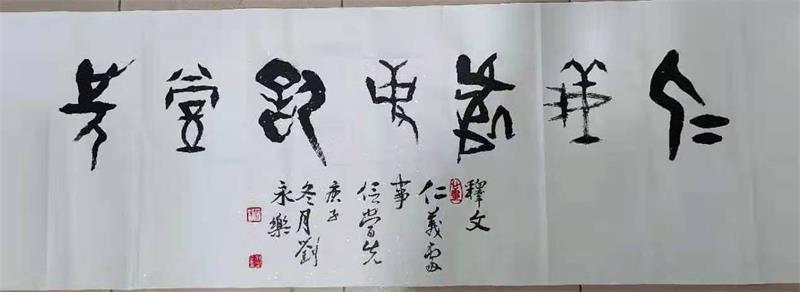 仁義處事信當先
釋文
仁義處
事
信當先
庚子
冬月劉
永樂